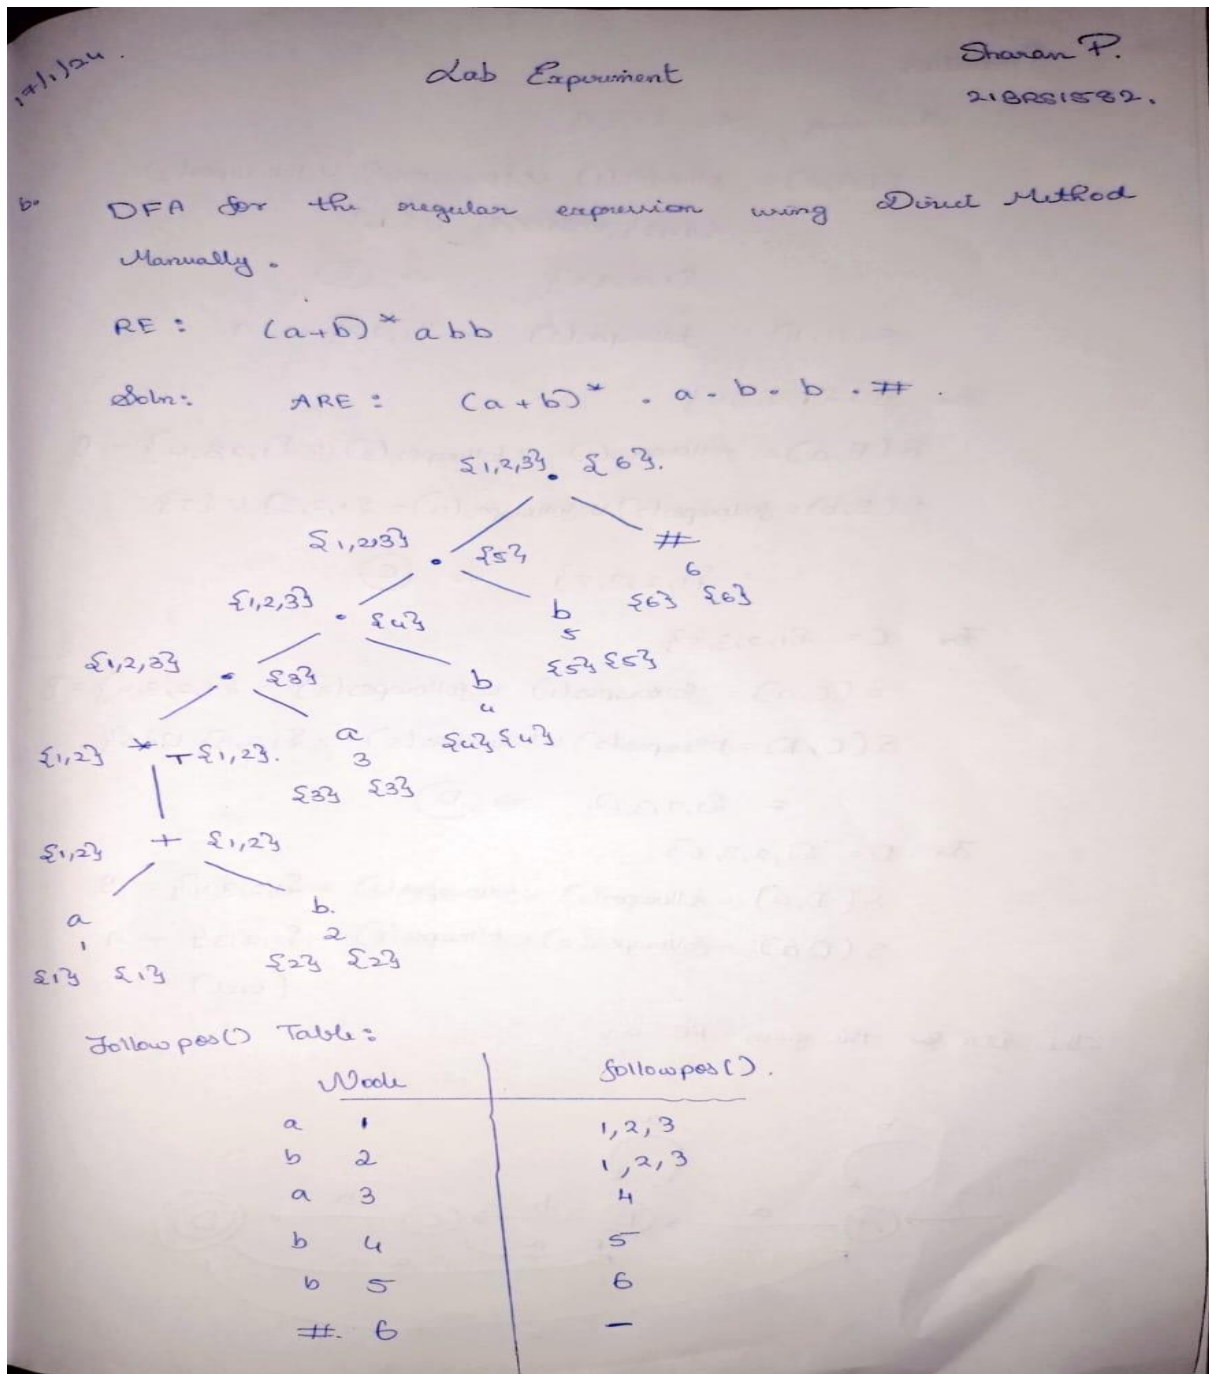 17/1/24.
Lab Experiment
Sharan P.
21BRS1582.
b. DFA for the regular expression using Direct Method
Manually.
RE : (a+b)* abb
Soln: ARE : (a+b)* . a . b . b . # .
{1,2,3} . {6}.
{1,2,3} . {5} #
6
{1,2,3} . {4} b {6} {6}
5
{1,2,3} . {3} b {5} {5}
4
{1,2} * {1,2}. a {4} {4}
3
{3} {3}
{1,2} + {1,2}
a b.
1 2
{1} {1} {2} {2}
Followpos() Table:
Node followpos().
a 1 1,2,3
b 2 1,2,3
a 3 4
b 4 5
b 5 6
#. 6 —